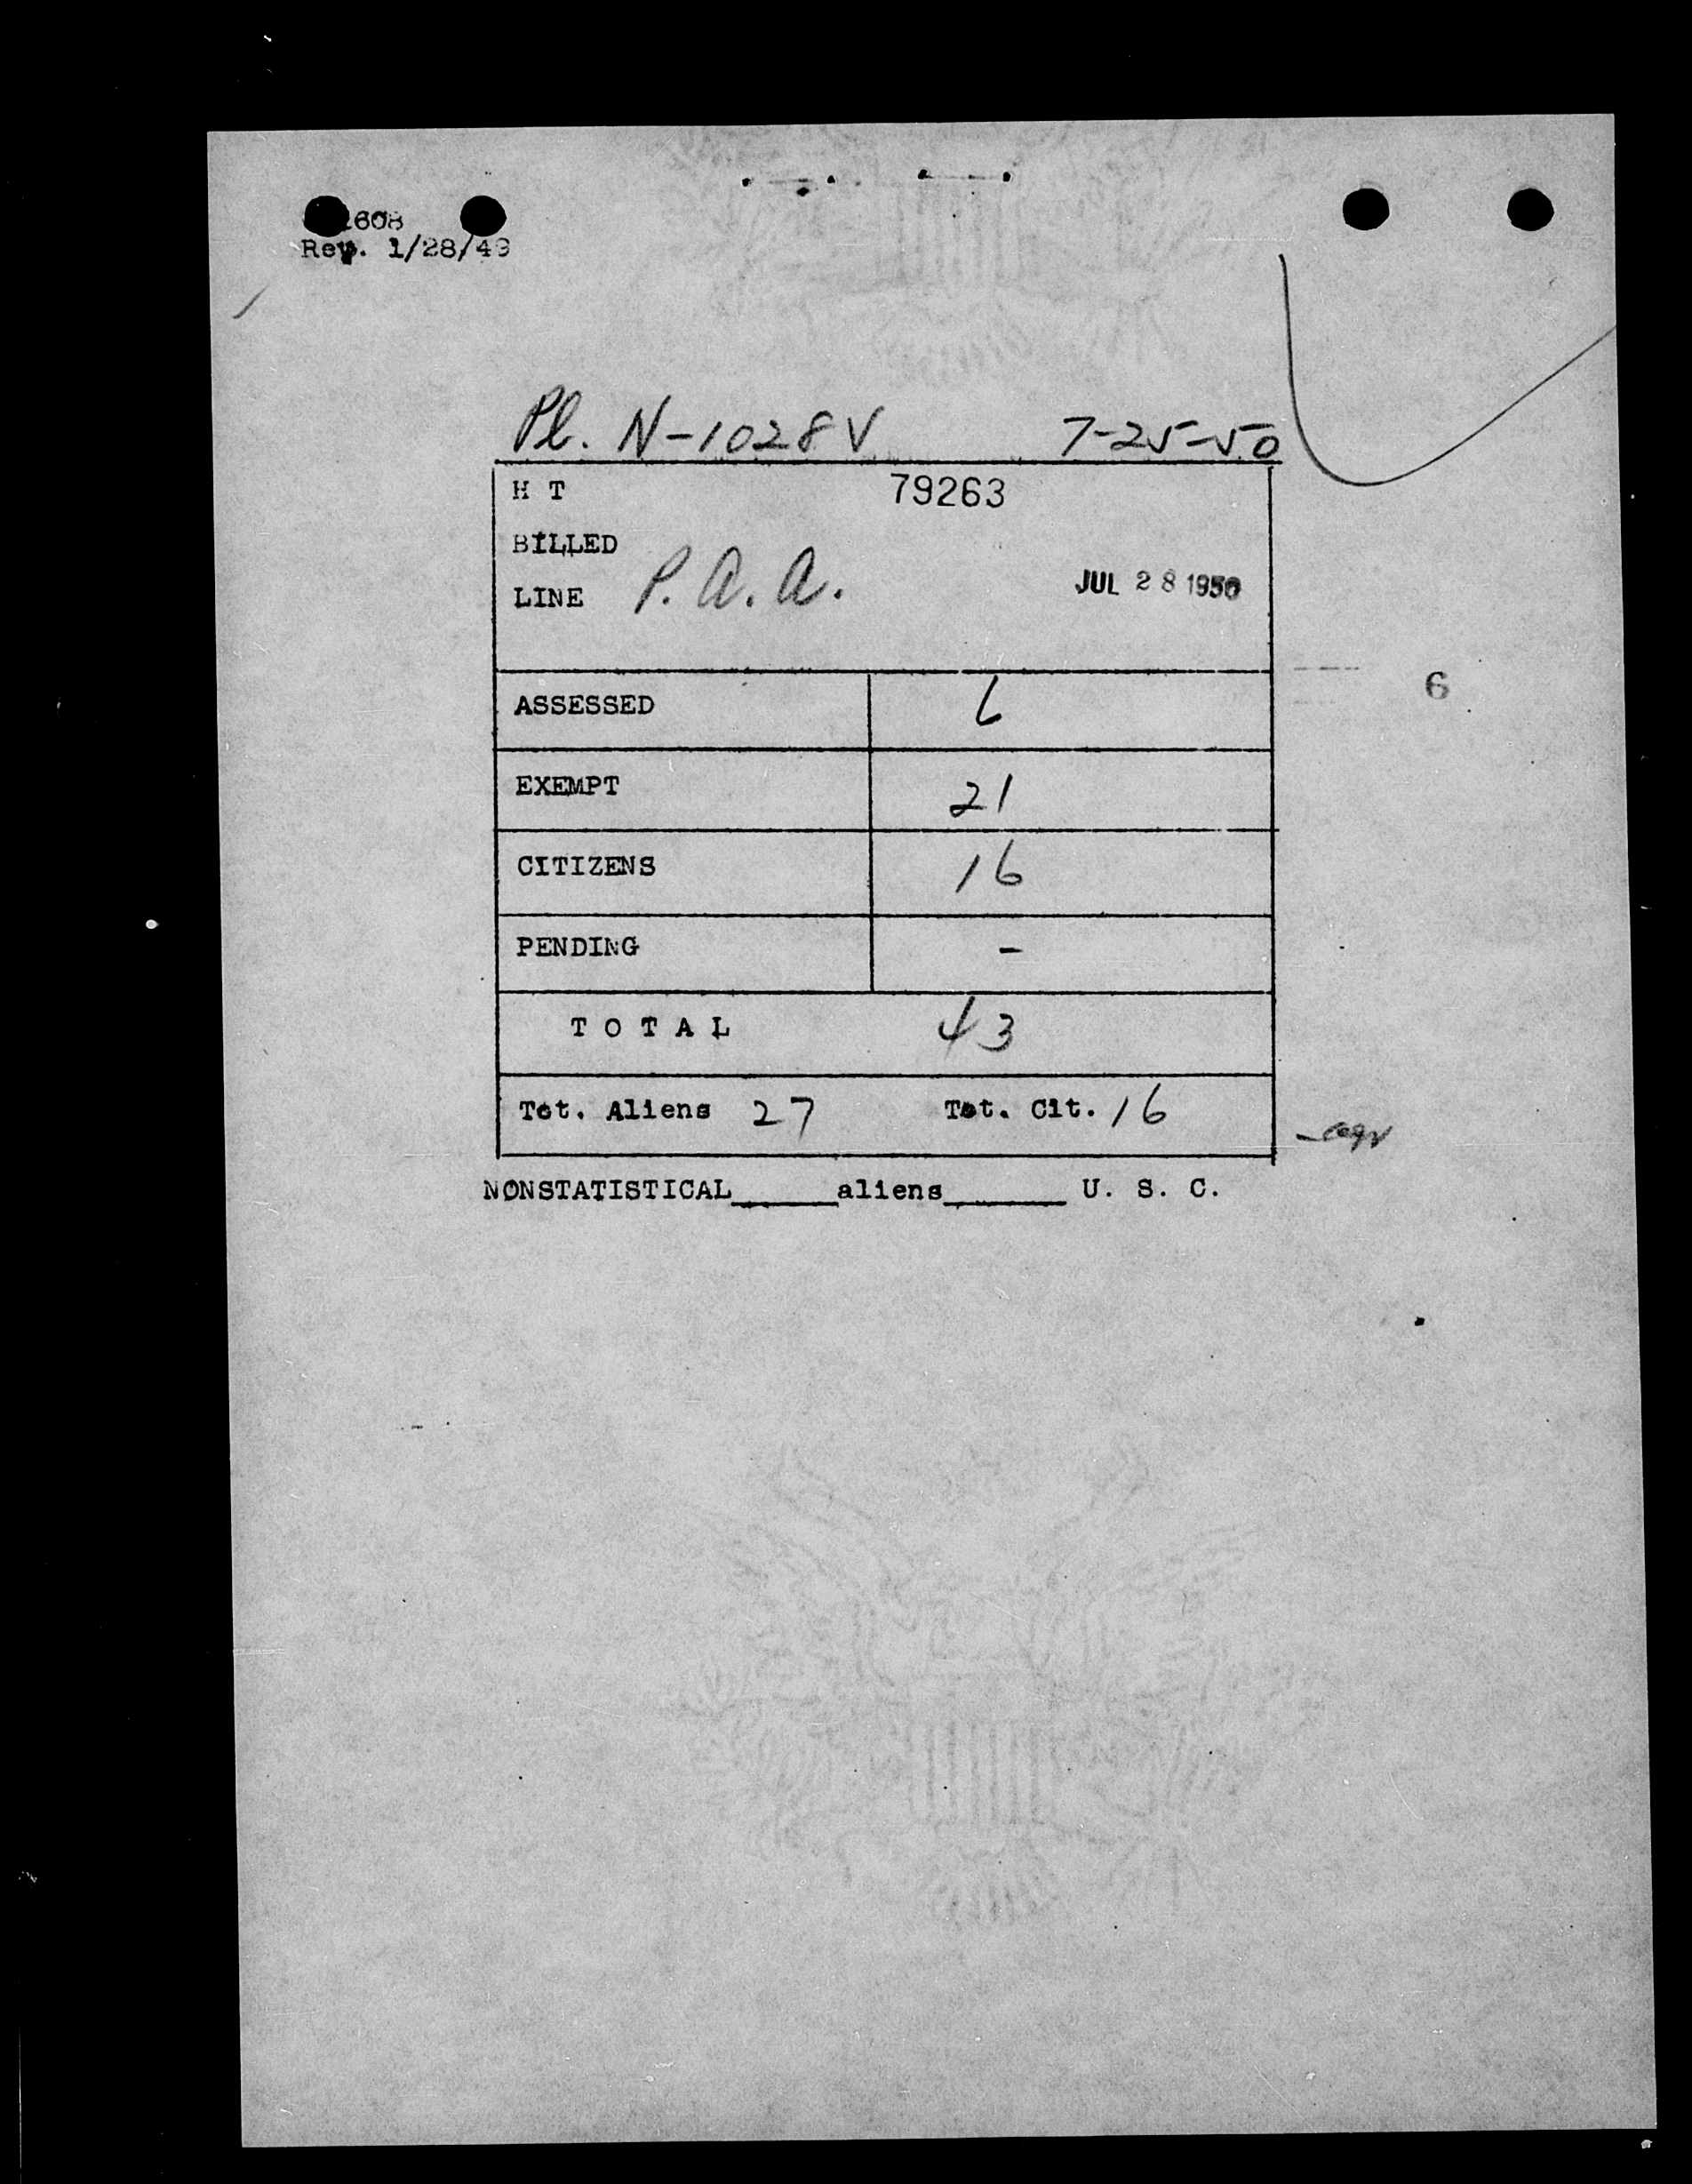 1608
Rev. 1/28/49
Pl. N-1028V 7-25-50
H T 79263
BILLED
LINE P.A.A. JUL 28 1950
ASSESSED 6
6
EXEMPT 21
CITIZENS 16
PENDING -
TOTAL 43
Tot. Aliens 27 Tot. Cit. 16
NONSTATISTICAL______aliens_______ U. S. C.